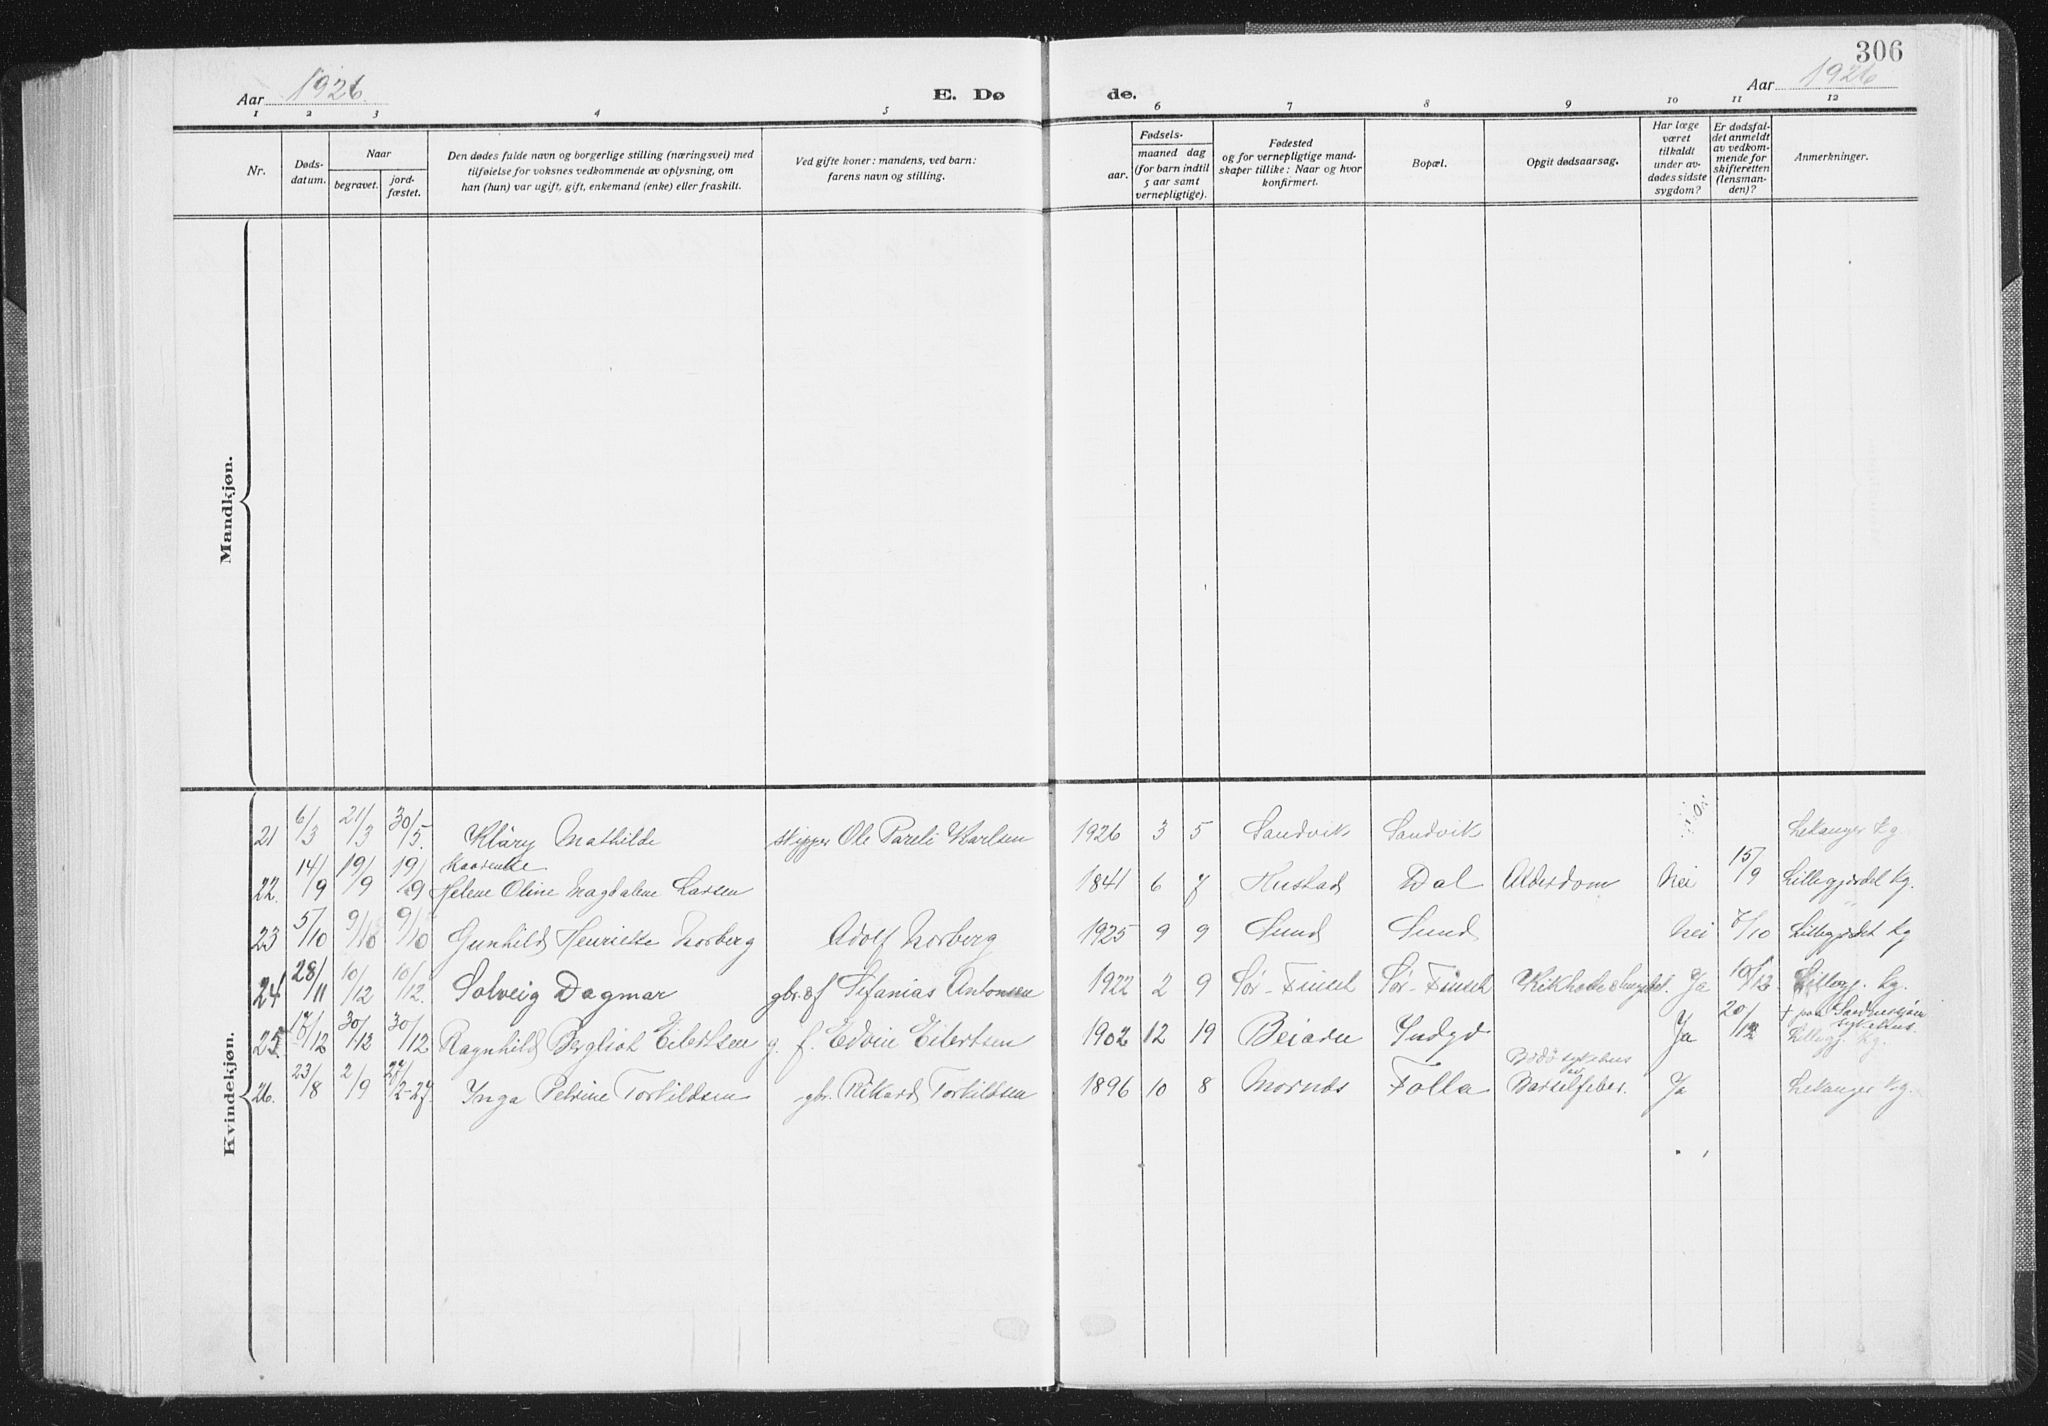 306
Aar 1926
E. Dø
de.
Aar 1926
1 2 3 4 5 6 7 8 9 10 11 12
Nr.
Døds-
datum.
Naar
begravet.
jord-
fæstet.
Den dødes fulde navn og borgerlige stilling (næringsvei) med
tilføielse for voksnes vedkommende av oplysning, om
han (hun) var ugift, gift, enkemand (enke) eller fraskilt.
Ved gifte koner: mandens, ved barn:
farens navn og stilling.
Fødsels-
aar.
maaned dag
(for barn indtil
5 aar samt
vernepligtige).
Fødested
og for vernepligtige mand-
skaper tillike: Naar og hvor
konfirmert.
Bopæl.
Opgit dødsaarsag.
Har læge
været
tilkaldt
under av-
dødes sidste
sygdom?
Er dødsfal-
det anmeldt
av vedkom-
mende for
skifteretten
(lensman-
den)?
Anmerkninger.
Mandkjøn.
Kvindekjøn.
21 6/3 21/3 30/5. Kläry Mathilde skipper Ole Pareli Karlsen 1926 3 5 Sandvik Sandvik Lekanger kg.
22. 14/9 19/9 19/9 Kaarenke Helene Oline Magdalene Larsen 1841 6 7 Hustad Dal Alderdom Nei 15/9 Lillegjærdet kg.
23 5/10 9/10 9/10 Gunhild Henrieke Norberg Adolf Norberg 1925 9 9 Sund Sund Nei 7/10 Lillegjærdet kg
24 28/11 10/12 10/12. Solveig Dagmar gbr. af Sefanias Antonsen 1922 2 9 Sør-Finset Sør-Finset Ja 10/12 Lillegj. kg.
25. 17/12 30/12 30/12 Ragnhild Bergliot Eilertsen g. f. Edvin Eilertsen 1902 12 19 Beiarn Indgd Ja 20/12 + paa Sandnessjøen
sykehus.
Lillegj. kg.
26. 23/8 2/9 27/2-27 Inga Petrine Torkildsen gbr. Rikard Torkildsen 1896 10 8 Mornes Folla Bodø sykehus
av
Barselfeber. Ja Lekanger kg.